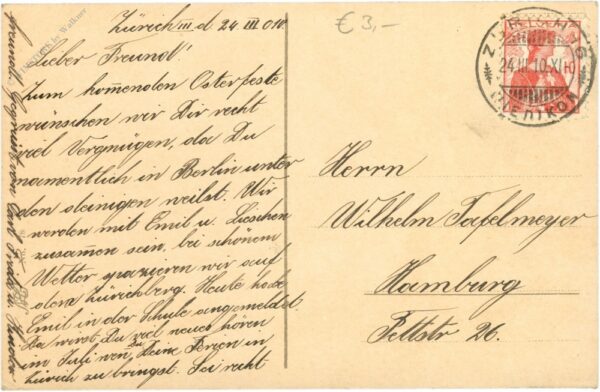 Zürich III d 24 III 010.
Lieber Freund!
Zum kommenden Osterfeste
wünschen wir Dir recht
viel Vergnügen, da Du
namentlich in Berlin unter
den deinigen weilst. Wir
werden mit Emil u. Lieschen
zusammen sein, bei schönem
Wetter spazieren wir auf
dem Zürichberg. Heute habe
Emil in der Schule angemeldet
Da wirst Du viel neues hören
im Juli wen Du Deine Ferien in
Zürich zu bringst. Sei recht
freundl. Gegrüsst von
€ 3,-
24.III.10.XI
WIEDIKON
Herrn
Wilhelm Tafelmeyer
Hamburg
Pettstr 26.